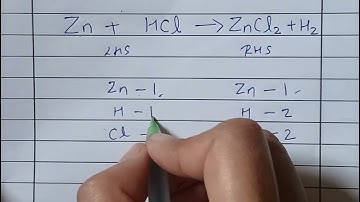 Zn + HCl → ZnCl2 + H2
LHS RHS
Zn - 1 Zn - 1
H - 1 H - 2
Cl - 2